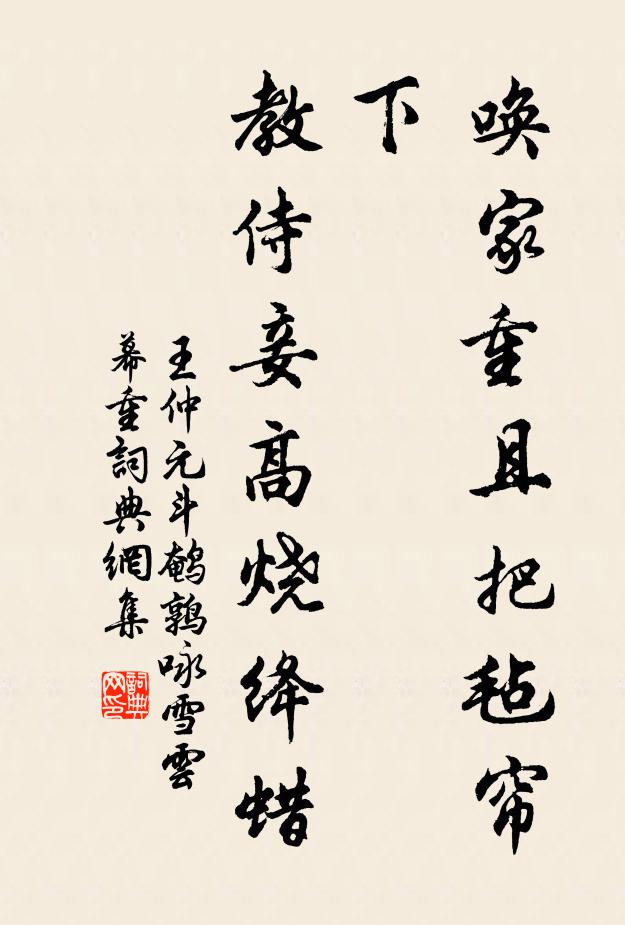 唤家重且把毡帘
下
教侍妾高烧绛蜡
王仲元斗鹌鹑咏雪雲
幕重詞典網集
詞典
网印